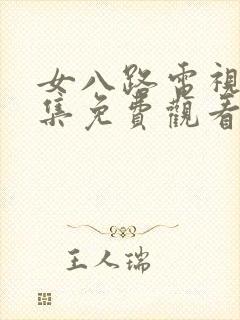 女八路電視
集免費觀看
王人瑞